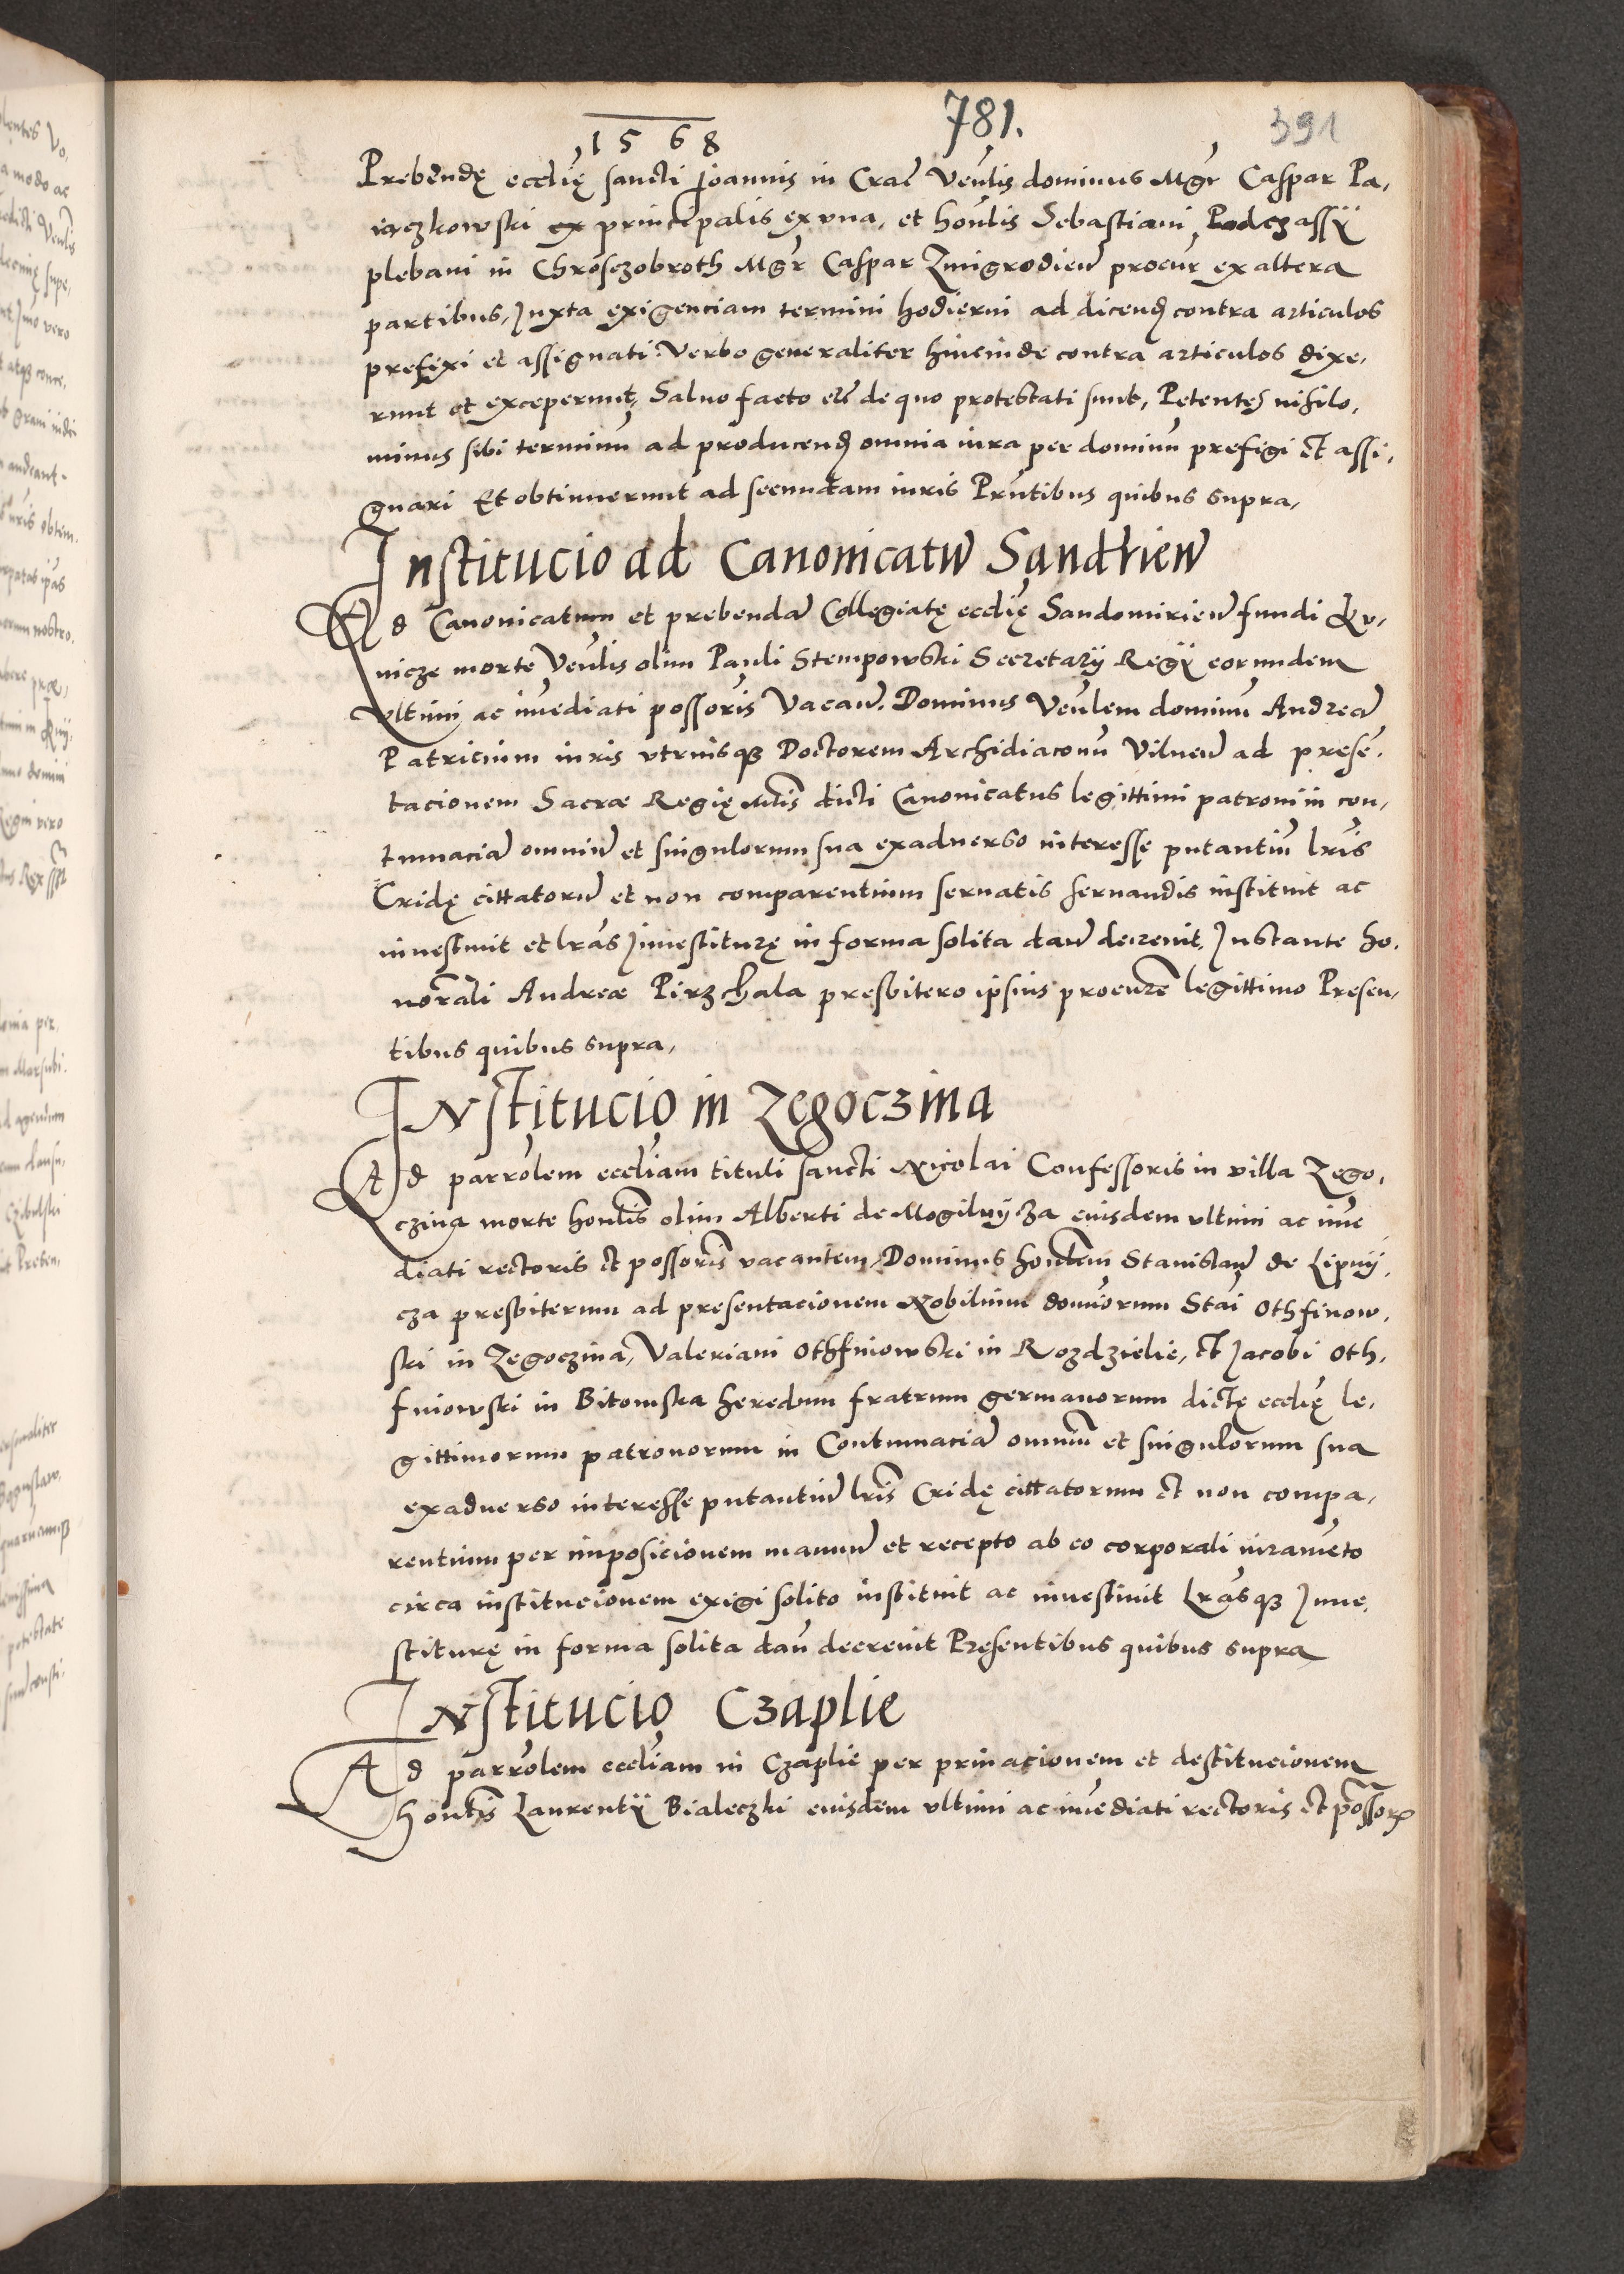 1568
781.
391
Prebendę ecclię sancti Joannis in Crac Venlis dominus Mgr Caspar Pa,
iączkowski ex principalis ex vna, et honlis Sebastiani Podczassÿ
plebani in Chrosczobroth Mgr Caspar Zmigrodien procur ex altera
partibus, Juxta exigenciam termini hodierni ad dicend contra articulos
prefixi et assignati. Verbo generaliter hincinde contra articulos dixe,
runt et exceperunt, Saluo facto etc de quo protestati sunt, Petentes nihilo,
minus sibi terminu ad producend omnia iura per dominu prefigi et assi,
gnari Et obtinuerunt ad secundam iuris Prntibus quibus supra,
Institucio ad Canonicatu Sandrien
Ad Canonicatum et prebenda Collegiatę ecclię Sandomirien fundi Ku,
nicze morte Venlis olim Pauli Stempowski Secretarÿ Regÿ eorundem
vltimi ac imediati possoris Vacan. Dominus Venlem dominu Andrea
Patricium iuris vtriusqz Doctorem Archidiaconu Vilnen ad presen,
tacionem Sacræ Regię Mtis dicti Canonicatus legittimi patroni in con,
tumacia omniu et singulorum sua exaduerso interesse putantiu lris
Cridę cittatoru et non comparentium seruatis seruandis instituit ac
inuestiuit et lras Inuestiturę in forma solita dan decreuit, Instante ho,
norabli Andreæ Pirzchala presbitero ipsius procure legittimo Presen,
tibus quibus supra,
Institucio in Zegoczina
Ad parrolem eccliam tituli sancti Nicolai Confessoris in villa Zego,
czina morte honlis olim Alberti de Mogilnÿcza eiusdem vltimi ac ime
diati rectoris et possoris vacantem, Dominus honlem Stanislau de Lipnÿ,
cza presbiterum ad presentacionem Nobilium domiorum Stai Othfinow,
ski in Zegoczina, Valeriani Othfiniowski in Rozdzielie, et Jacobi Oth,
finiowski in Bitomska heredum fratrum germanorum dictę ecclię le,
gittimorum patronorum in Contumacia omniu et singulorum sua
exaduerso interesse putantiu lris Cridę cittatorum et non compa,
rentium per imposicionem manuu et recepto ab eo corporali iurameto
circa institucionem exigi solito instituit ac inuestiuit Lrasqz Inue,
stiturę in forma solita dan decreuit Presentibus quibus supra
Institucio Czaplie
Ad parrolem eccliam in Czaplie per priuacionem et destitucionem
honlis Laurentÿ Bialeczki eiusdem vltimi ac imediati rectoris et possoris